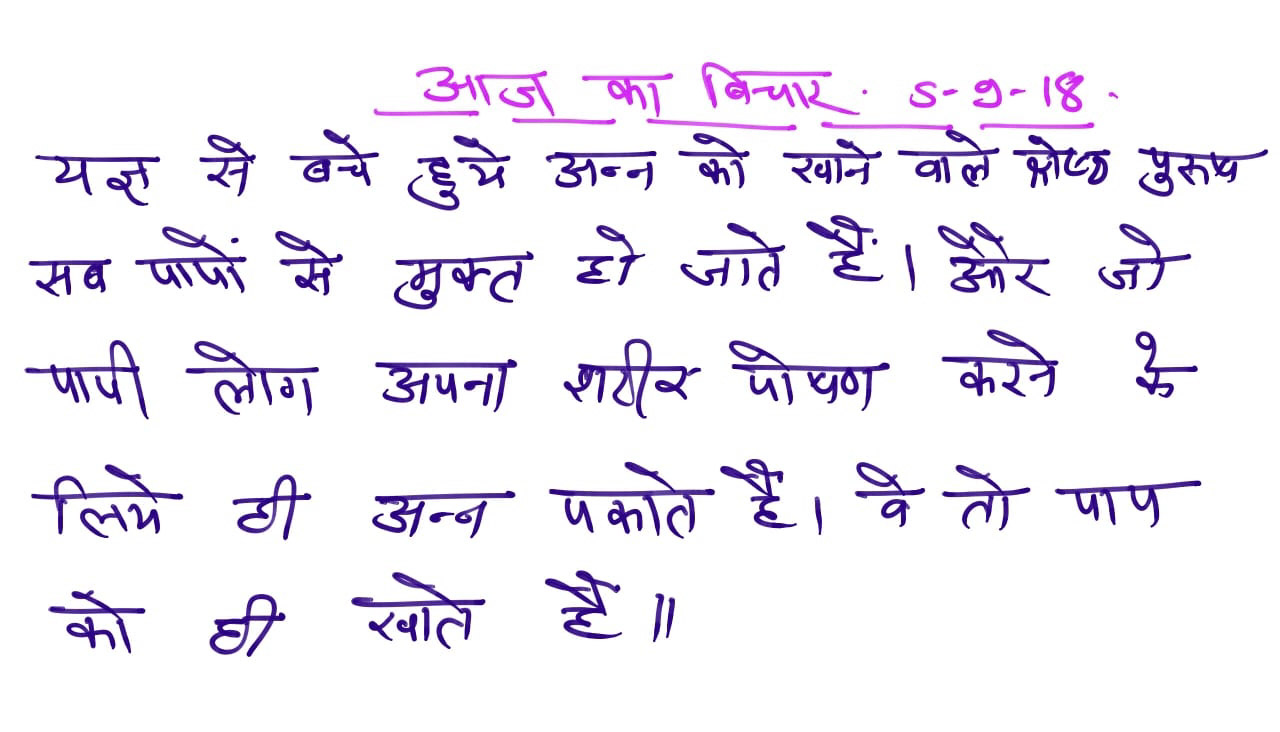 आज का विचार. 5-9-18.
यज्ञ से बचे हुये अन्न को खाने वाले श्रेष्ठ पुरूष
सब पापों से मुक्त हो जाते हैं। और जो
पापी लोग अपना शरीर पोषण करने के
लिये ही अन्न पकाते है। वे तो पाप
को ही खाते है॥